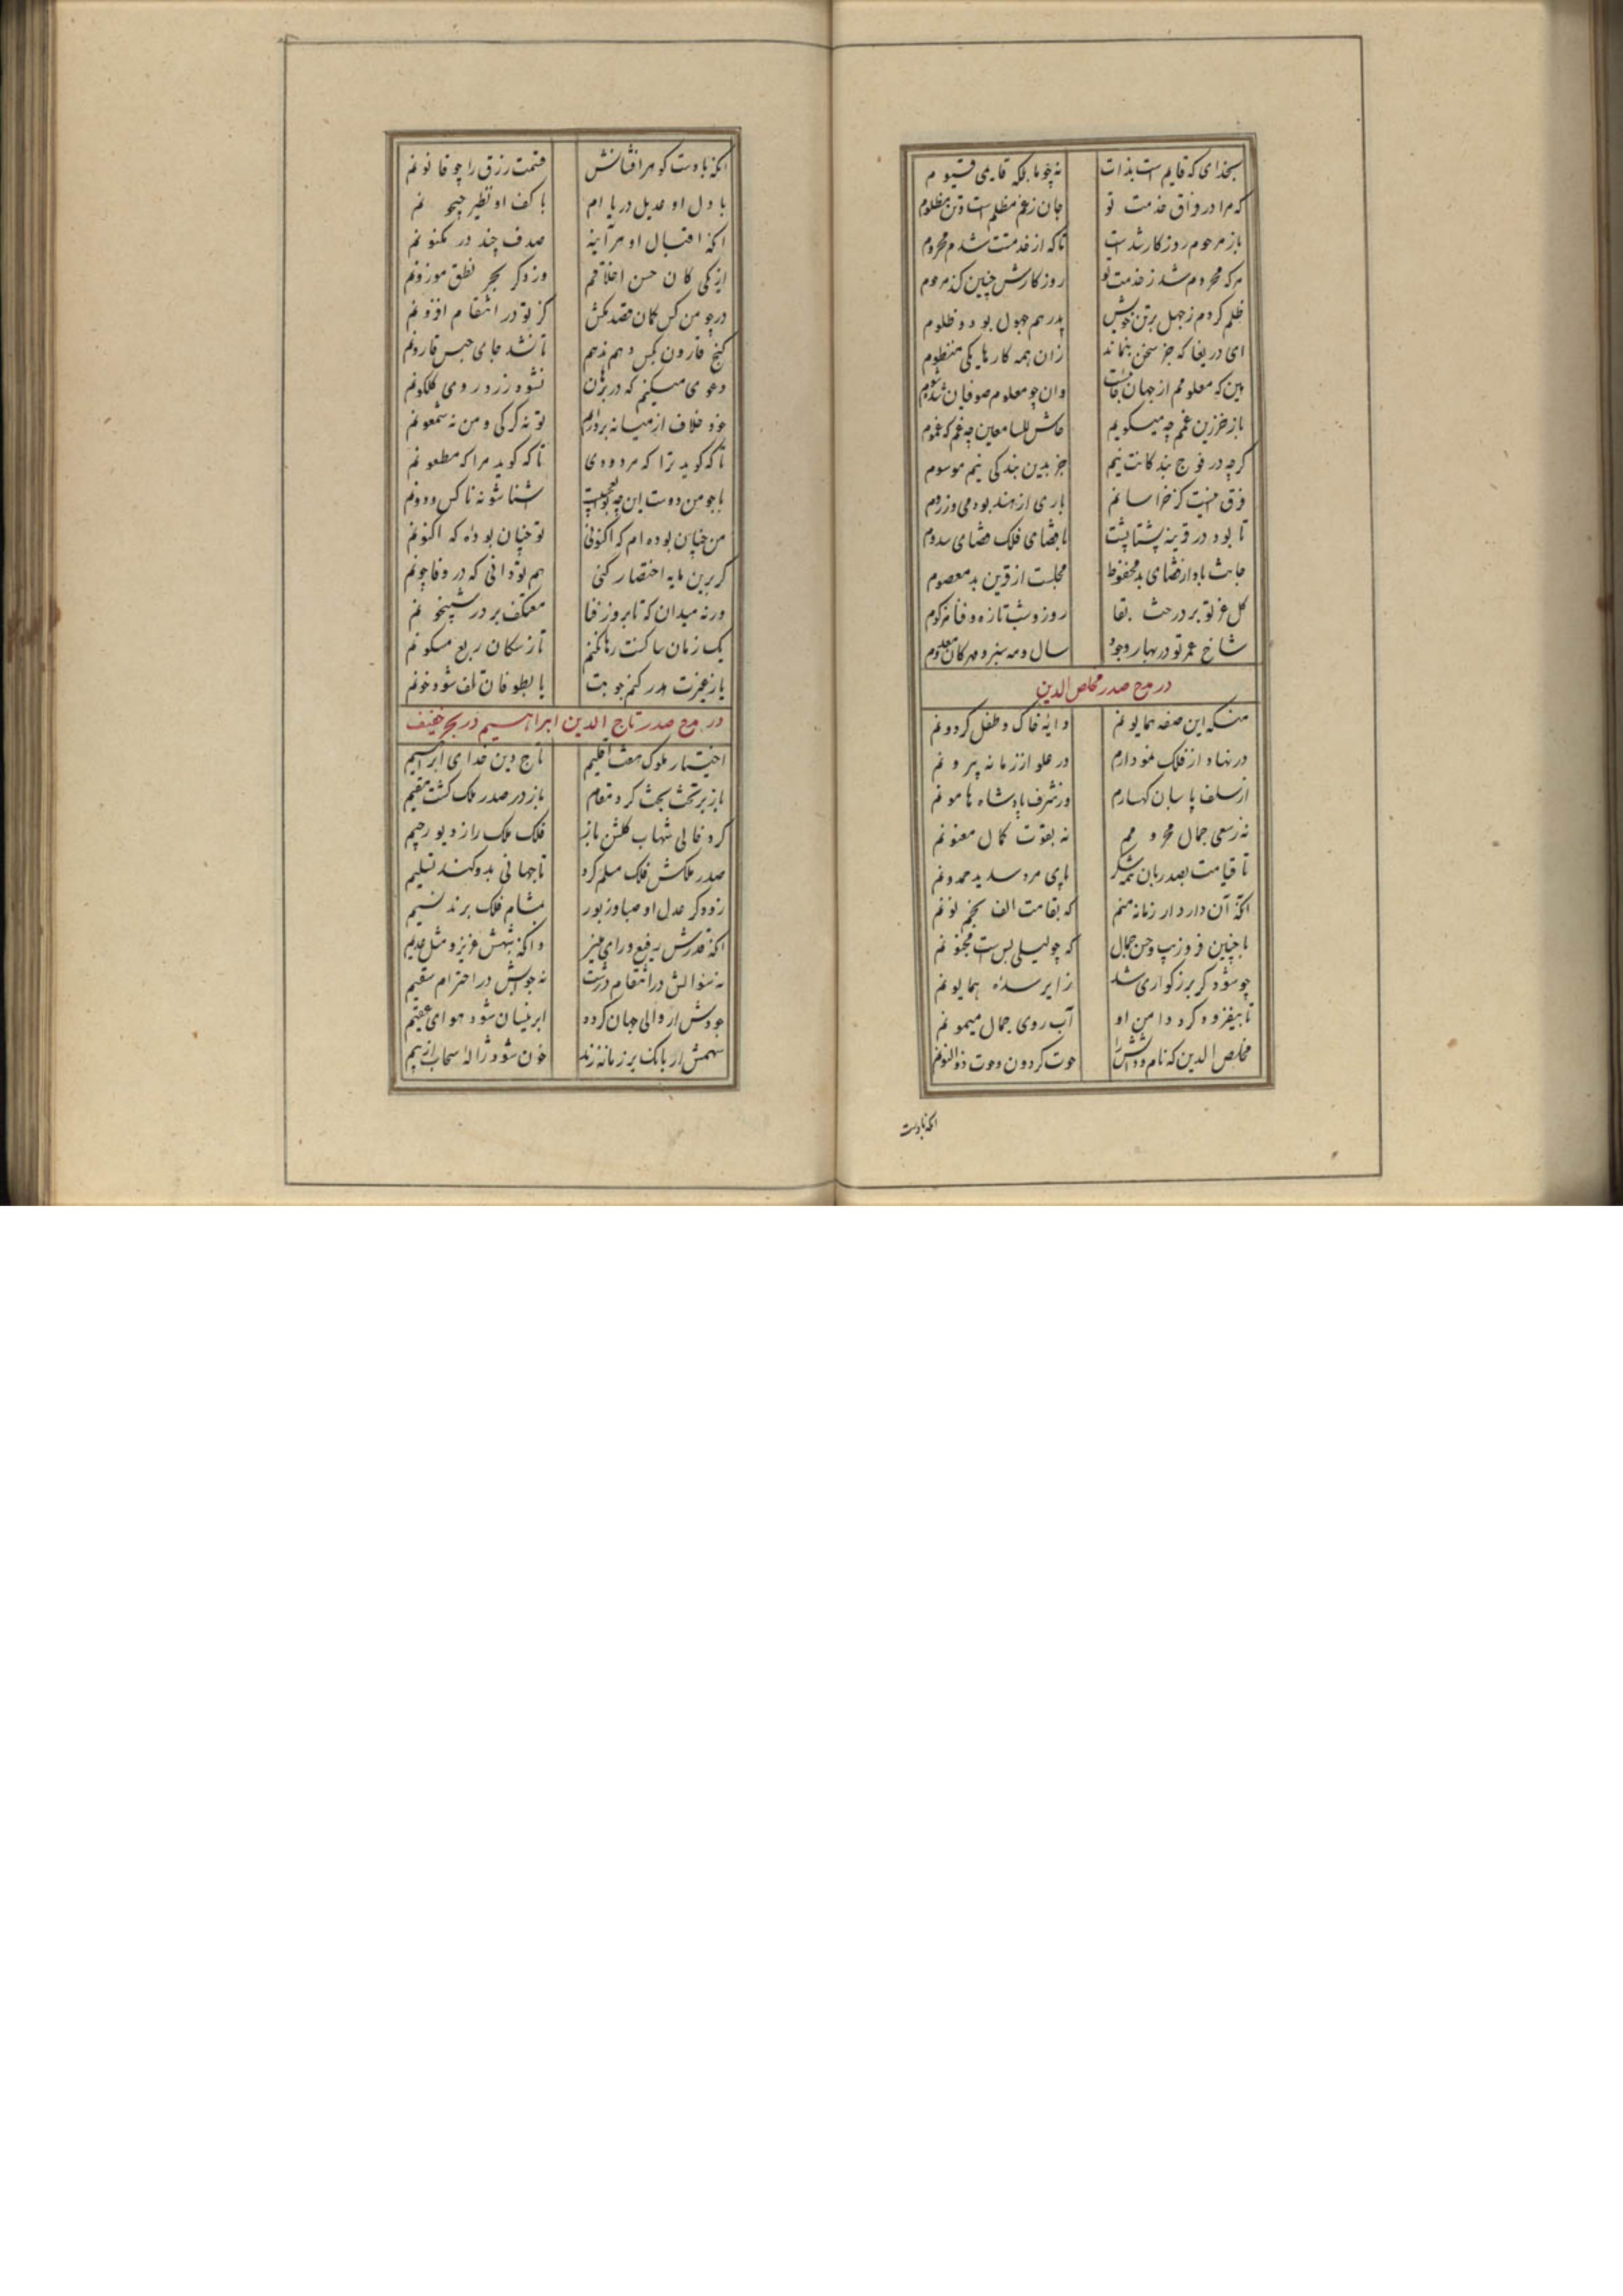 بخدای که قایم است بذات
نه چو ما بلکه قایمی قیوم
که مرا در فراق خدمت تو
جان ز غم مظلم است و تن مظلوم
باز مرحوم روزکار شدست
تا که از خدمتت شدم محروم
هرکه محروم شد ز خدمت تو
روزکارش چنین کند مرحوم
ظلم کردم ز جهل بر تن خویش
پدرم هم جهول بود و ظلوم
ای دریغا که جز سخن بنماند
زان همه کارهای یکی منظوم
هین که معلومم از جهان
وان چو معلوم صوفیان شوم
باز خر زین غمم چه میکویم
حاش للسامعین چه غم که غموم
کرچه در فوج بندکانت نیم
جز بدین بندکی نیم موسوم
فرق اینست کز خراسانم
باری از هند بودمی وز روم
تا بود در قرینه پشتاپشت
با قضای فلک قضای سدوم
جانت باد از قضای بد محفوظ
مجلست از قرین بد معصوم
کل عز تو بر درخت بقا
روز و شب تازه و فنا مزکوم
شاخ عمر تو در بهار وجود
سال و مه سبز و مهرکان معدوم
در مدح صدر مخلص الدین
منکه این صفه همایونم
دایه خاک و طفل کردونم
در نهاد از فلک نمودارم
در علو از زمانه بیرونم
از سلف پاسبان کهسارم
وز شرف پادشاه هامونم
نه ز سعی جمال محرومم
نه بقوت کمال مغبونم
تا قیامت بصد زبان شکر
پای مرد سدید حمدونم
آنکه آن دار دار زمانه منم
که بقامت الف بخم نونم
با چنین فر و زیب و حسن جمال
که چو لیلی بس است مجنونم
چو شود کر بزرکواری شد
زایر سده همایونم
تا بیفزود کرد دامن او
آب روی جمال میمونم
مخلص الدین که نام و دانش را
حوت کردون و حوت ذوالنونم
آنکه با دست
آنکه با دست کوهر افشانش
قسمت رزق را چو قانونم
با دل او عدیل دریاام
با کف او نظیر جیحونم
آنکه اقبال او هر آینه
صدف چند در مکنونم
از یکی کان حسن اخلاقم
وز دکر بحر نطق موزونم
در چو من کس کمان قصد مکش
کز تو در انتقام افزونم
کنج قارون بکس دهم ندهم
تا نشد جای حبس قارونم
دعوی میکنم که در برهان
نشود زرد روی کلکونم
خود خلاف از میانه بردارم
تو نه کرکی و من نه شمعونم
تا که کوید ترا که مردودی
تا که کوید مرا که مطعونم
با چو من دوست این چه بوالعجبیست
آشنا شو نه ناکس و دونم
من چنان بوده‌ام که اکنونی
تو چنان بوده‌ که اکنونم
کر برین مایه اختصار کنی
هم تو دانی که در وفا چونم
ورنه میدان که تا بروز فنا
معتکف بر در شبیخونم
یک زمان ساکنت رها نکنم
تا ز سکان ربع مسکونم
یا ز غیرت هدر کنم چو بنت
یا بطوفان تلف شود خونم
در مدح صدر تاج الدین ابراهیم در بحر خفیف
اختیار ملوک هفت اقلیم
تاج دین خدای ابراهیم
باز بر تخت بخت کرد مقام
باز در صدر ملک کشت مقیم
کرد خالی شهاب کلکش باز
فلک ملک را ز دیو رجیم
صدر ملکش فلک مسلم کرد
تا جهانی بدو کنند تسلیم
زود کز عدل او صبا و دبور
بمشام فلک برند نسیم
آنکه قدرش رفیع و رای منیر
وانکه شبهش عزیز و مثل عدیم
نه سؤالش در انتقام درشت
نه جوابش در احترام سقیم
جودش ار والی جهان کردد
ابر نیسان شود هوای عقیم
سهمش ار بانک بر زمانه زند
خون شود ژاله سحاب از بیم